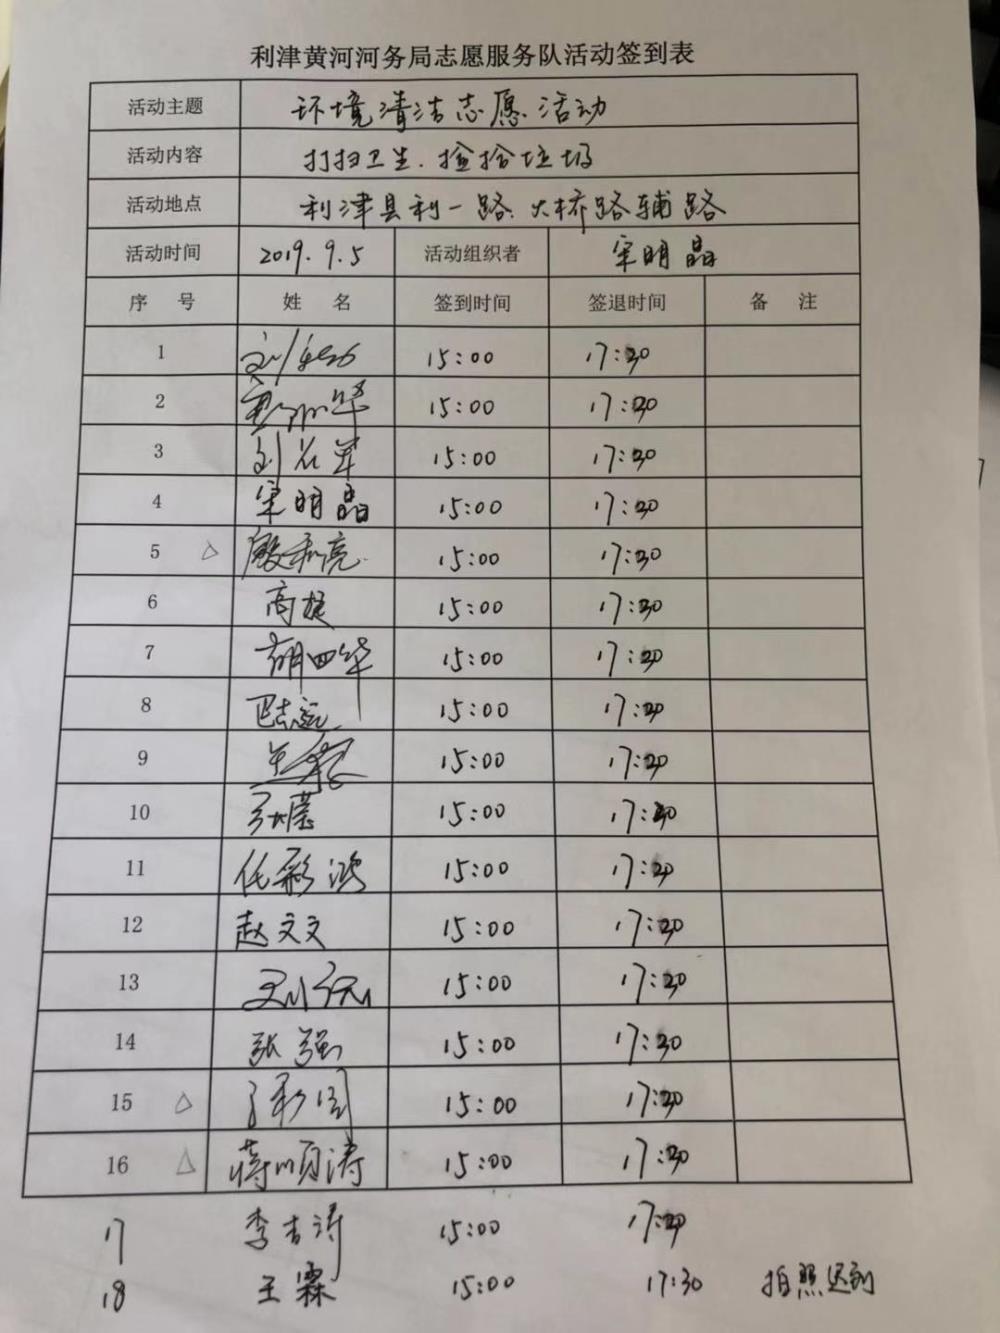 利津黄河河务局志愿服务队活动签到表
活动主题 环境清洁志愿活动
活动内容 打扫卫生.捡拾垃圾
活动地点 利津县利一路、大桥路辅路
活动时间 2019.9.5 活动组织者 宋明晶
序 号 姓 名 签到时间 签退时间 备 注
1 15:00 17:30
2 15:00 17:30
3 15:00 17:30
4 宋明晶 15:00 17:30
5 △ 殷和亮 15:00 17:30
6 高挺 15:00 17:30
7 胡四华 15:00 17:30
8 15:00 17:30
9 15:00 17:30
10 15:00 17:30
11 任彩鸿 15:00 17:30
12 赵文文 15:00 17:30
13 15:00 17:30
14 张强 15:00 17:30
15 △ 15:00 17:30
16 △ 蒋顺涛 15:00 17:30
17 李吉涛 15:00 17:30
18 王霖 15:00 17:30 拍照迟到